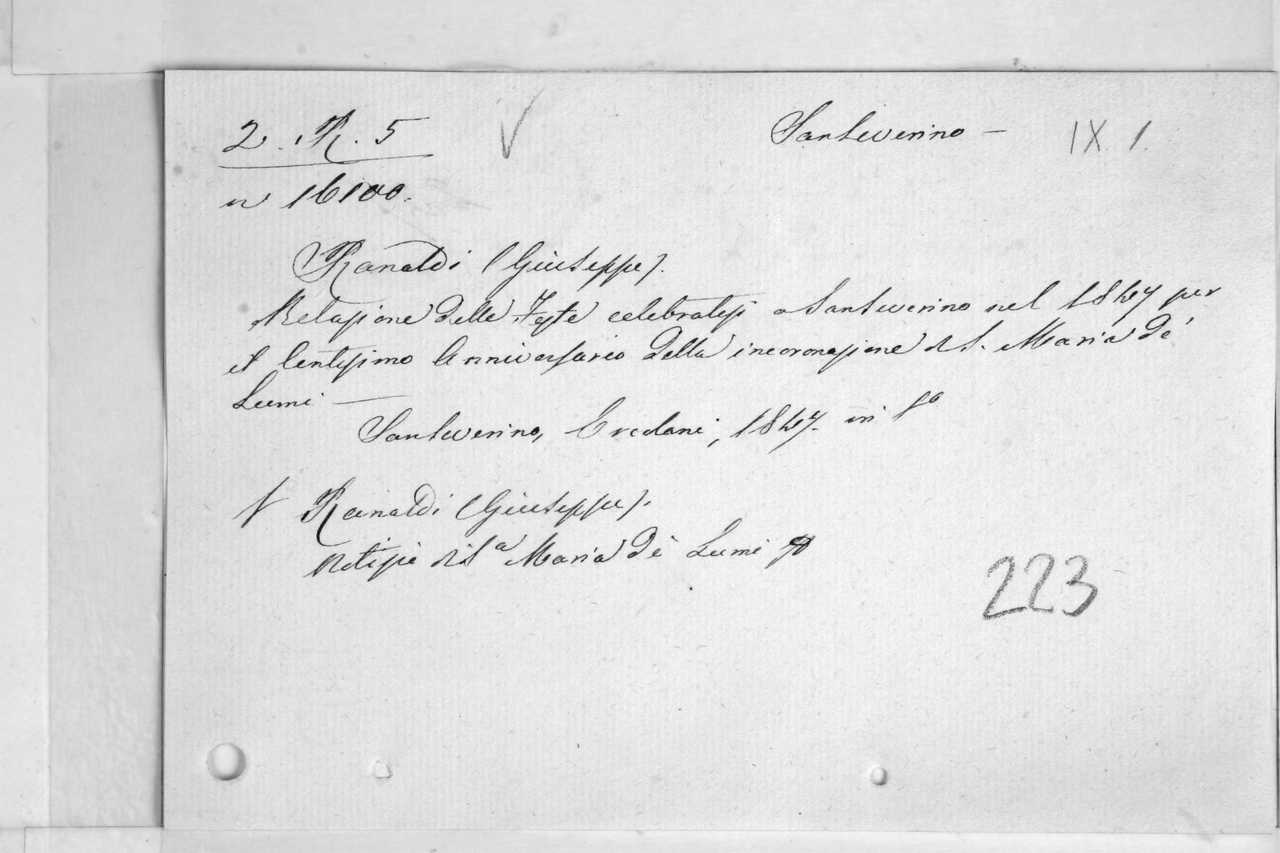 2. R. 5
Sanseverino — IX. 1.
n 16100.
Ranaldi (Giuseppe).
Relazione delle Feste celebratesi a Sanseverino nel 1847 per
il Centesimo Anniversario della incoronazione di S. Maria de'
Lumi —
Sanseverino, Ercolani, 1847. in 8°
Ranaldi (Giuseppe).
Notizie di S.a Maria de' Lumi
223